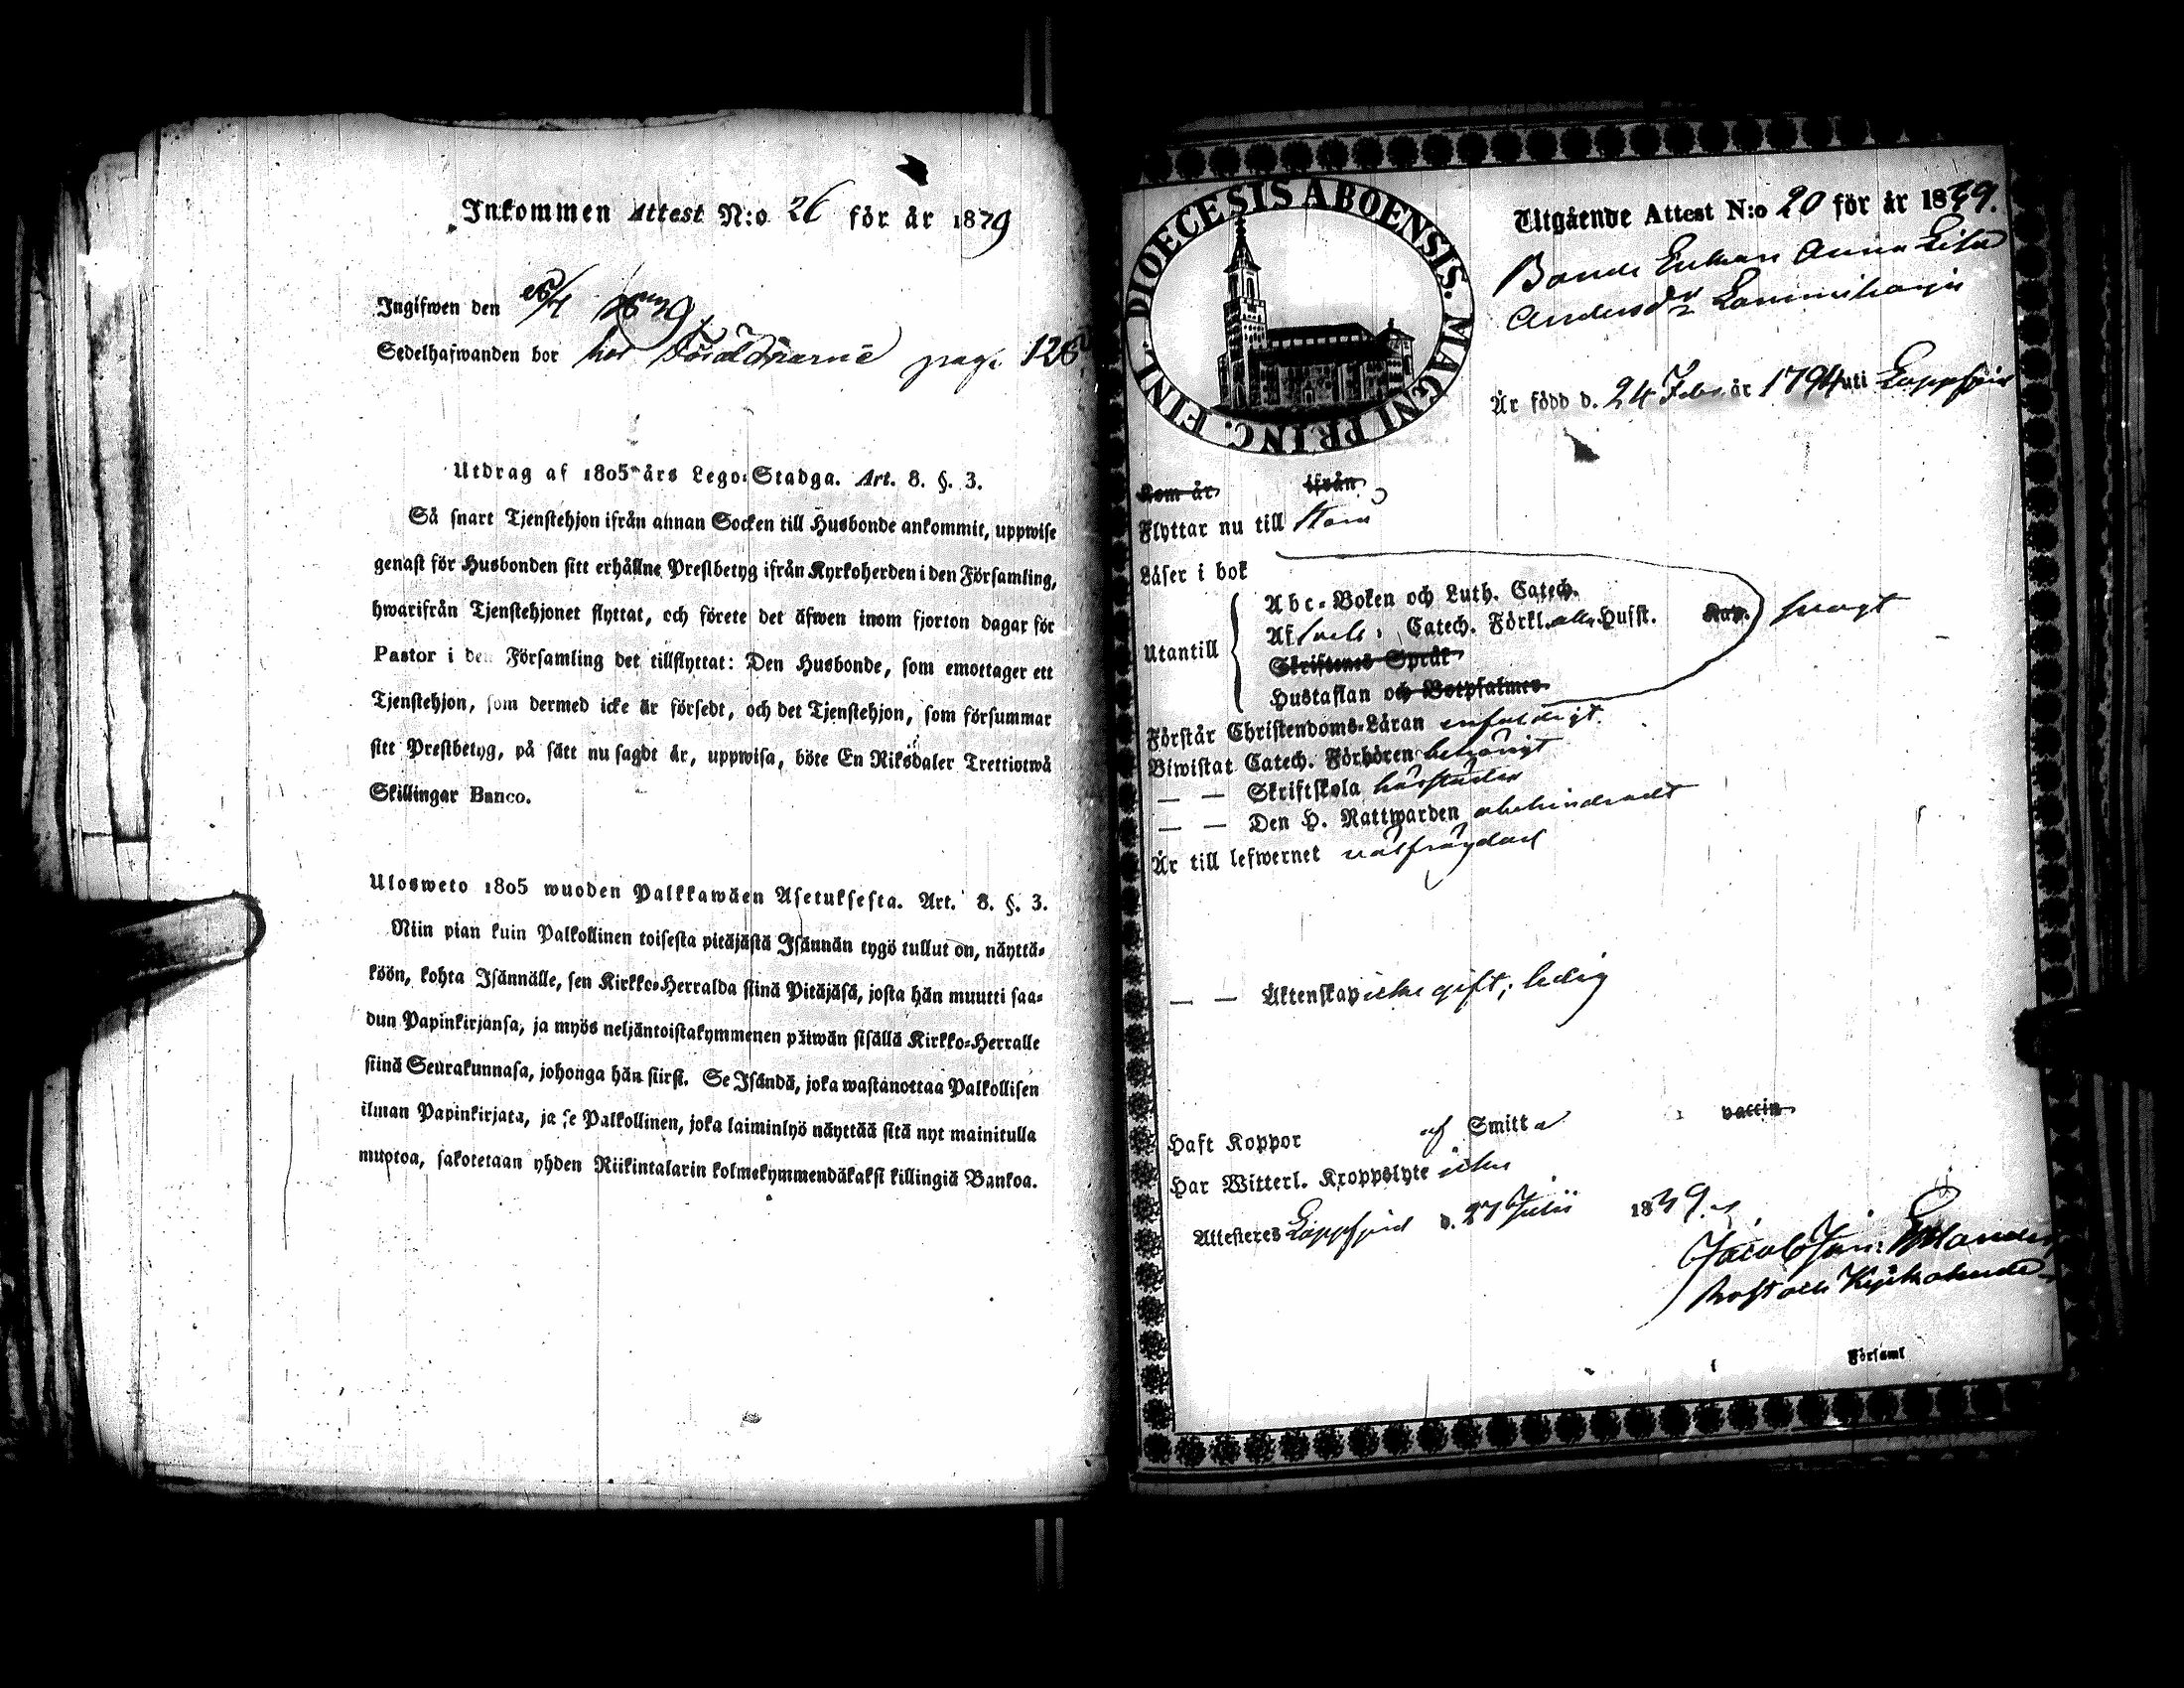 Inkommen Attest N:o 26 för år 1839
Ingifwen den
Sedelhafwanden bor hos Föräldrarne pag. 126
Utdrag af 1805 års Lego-Stadga. Art. 8. §. 3.
Så snart Tjenstehjon ifrån annan Socken till Husbonde ankommit, uppwise
genast för Husbonden sitt erhållne Prestbetyg ifrån Kyrkoherden i den Församling,
hwarifrån Tjenstehjonet flyttat, och förete det äfwen inom fjorton dagar för
Pastor i den Församling det tillflyttat: Den Husbonde, som emottager ett
Tjenstehjon, som dermed icke är försedt, och det Tjenstehjon, som försummar
sitt Prestbetyg, på sätt nu sagdt är, uppwisa, böte En Riksdaler Trettiotwå
Skillingar Banco.
Ulosweto 1805 wuoden Palkkawäen Asetuksesta. Art. 8. §. 3.
Niin pian kuin Palkollinen toisesta pitäjästä Isännän tygö tullut on, näyttä-
köön, kohta Isännälle, sen Kirkko-Herralda siinä Pitäjäsä, josta hän muutti saa-
dun Papinkirjansa, ja myös neljäntoistakymmenen päiwän sisällä Kirkko-Herralle
siinä Seurakunnasa, johonga hän siirsi. Se Isändä, joka wastanottaa Palkollisen
ilman Papinkirjata, ja se Palkollinen, joka laiminlyö näyttää sitä nyt mainitulla
muotoa, sakotetaan yhden Riikintalarin kolmekymmendäkaksi killingiä Bankoa.
DIOECESIS ABOENSIS. MAGNI PRINC. FINL.
Utgående Attest N:o 20 för år 1839.
Bonde Enkan Anna Lisa
Andersdr
Är född d. 24 Febr. år 1794 uti Lappfjerd
Kom år ifrån
Flyttar nu till
Läser i bok
Utantill
Abc-Boken och Luth. Catech.
Af Catech. Förkl. Husst. Kap. svagt
Skriftenes Språk
Hustaflan och Botpsalmer.
Förstår Christendoms-Läran enfaldigt.
Biwistat Catech. Förhören behörigt
— — Skriftskola härstädes
— — Den H. Nattwarden obehindradt
Är till lefwernet välfräjdad
— — Äktenskap icke gift; ledig
Haft Koppor af Smitta vaccin.
Har Witterl. Kroppslyte icke
Attesteres Lappfjerd d. 27 Julii 1839.
Jacob Joh: Estlander
Prost och Kyrkoherde
Församl